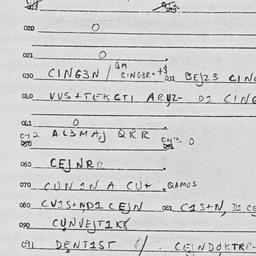 020 0
021 0
030 CING3N / QM CING3R-+$ 031 BEJZ3 CING
040 VVS+TEKCTI ARYZ- D1 CING
041 0
042 AL3MAJ QKR 042 0
060 CEJNR
070 CUN1N A CU+. QAMUS
080 CV1S+ND1 CEJN 081 C1S+N, D1 CE
090 CUNVEJT1K8
091 DENT1ST /. CEJNDOKTRP-